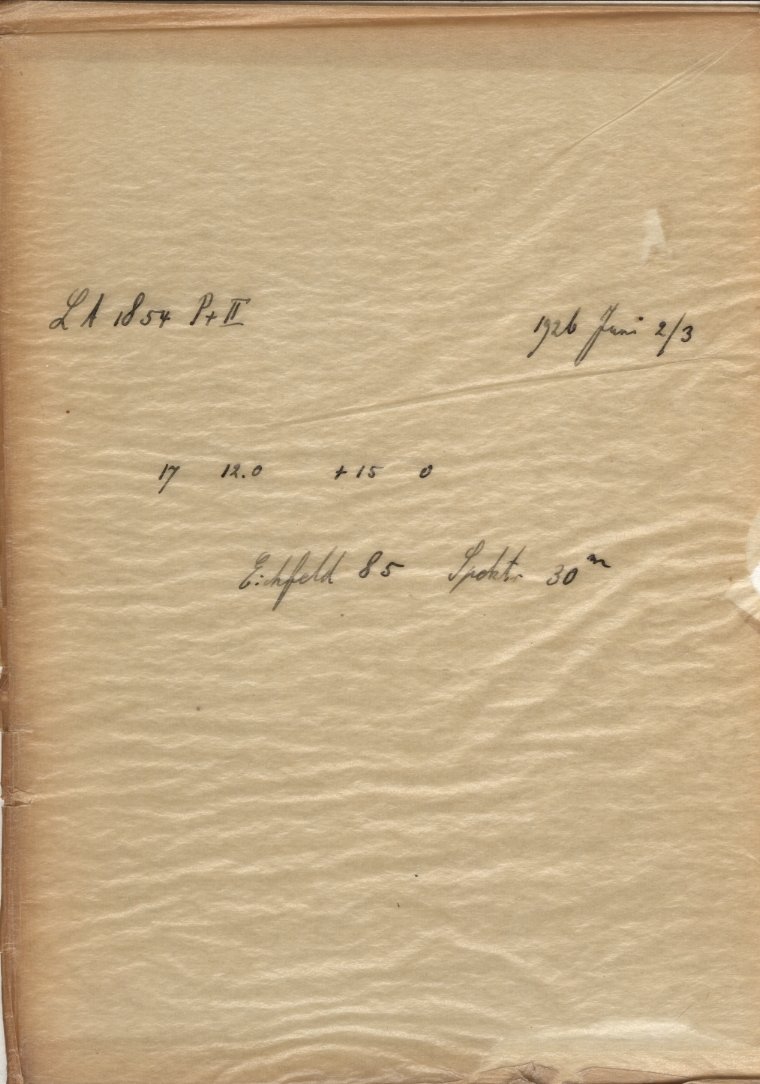 LA 1854 P+II 1926 Juni 2/3
17 12.0 +15 0
Eichfeld 85 Spektr. 30ᵐ